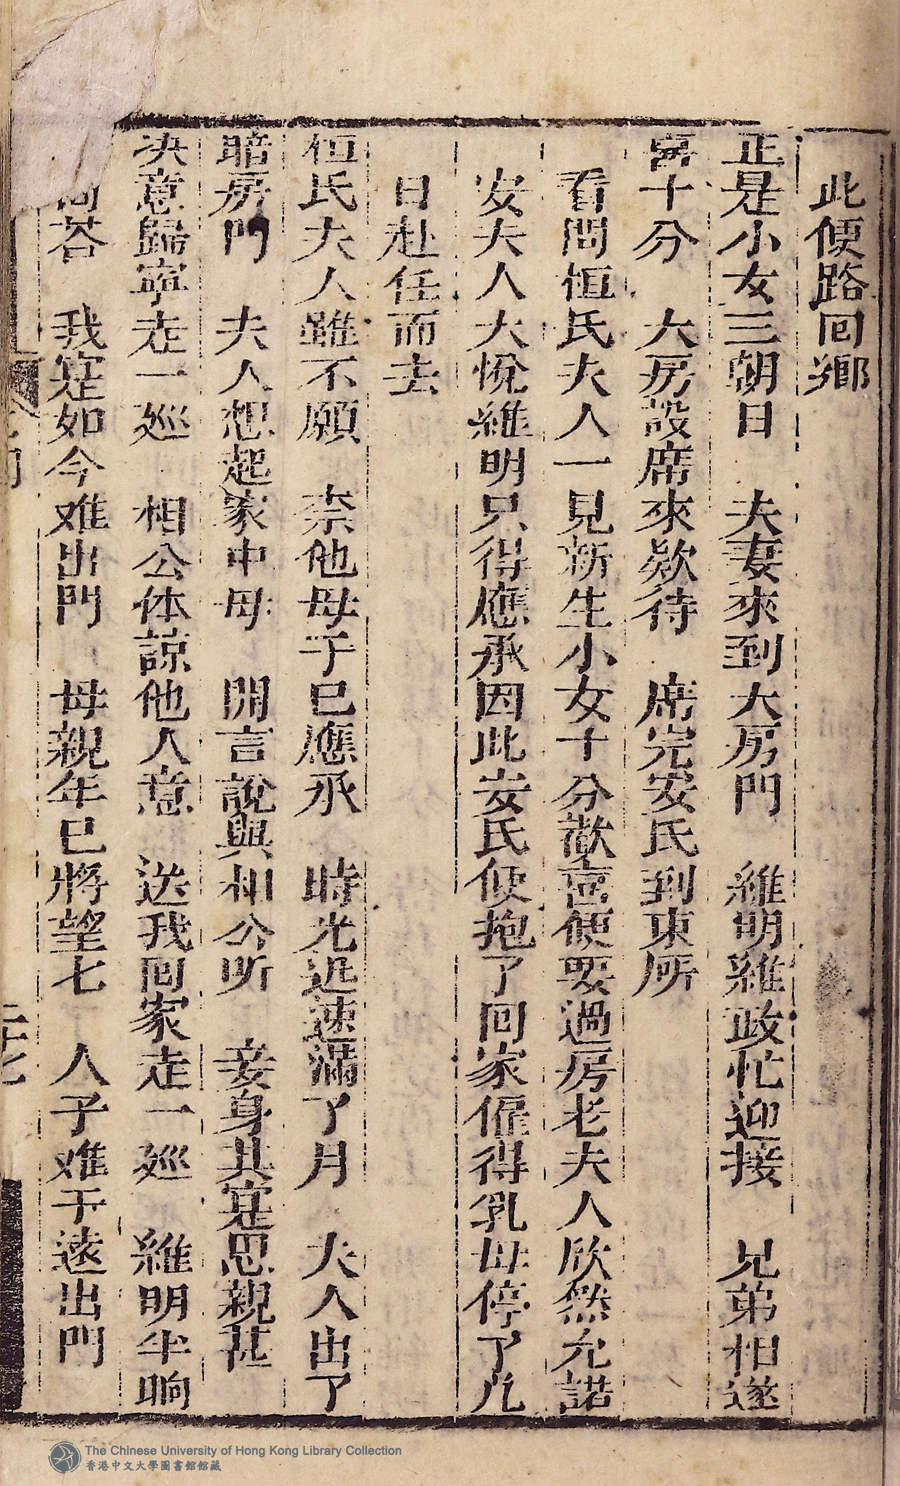 此便路囘鄉
正是小女三朝日　夫妻來到大房門　維明維政忙迎接　兄弟相遂
喜十分　大房設席來欵待　席完安氏到東所
看問恒氏夫人一見新生小女十分歡喜便要過房老夫人欣然允諾
安夫人大悅維明只得應承因此安氏便抱了囘家僱得乳母停了几
日赴任而去
恒氏夫人雖不願　柰他母子已應承　時光迅速滿了月　夫人出了
暗房門　夫人想起家中母　開言說與相公听　妾身其寔思親甚
决意歸寧走一廵　相公体諒他人意　送我囘家走一廵　維明半晌
荅　我寔如今难出門　母親年已將望七　人子难于遠出門
二十七
The Chinese University of Hong Kong Library Collection
香港中文大學圖書館館藏